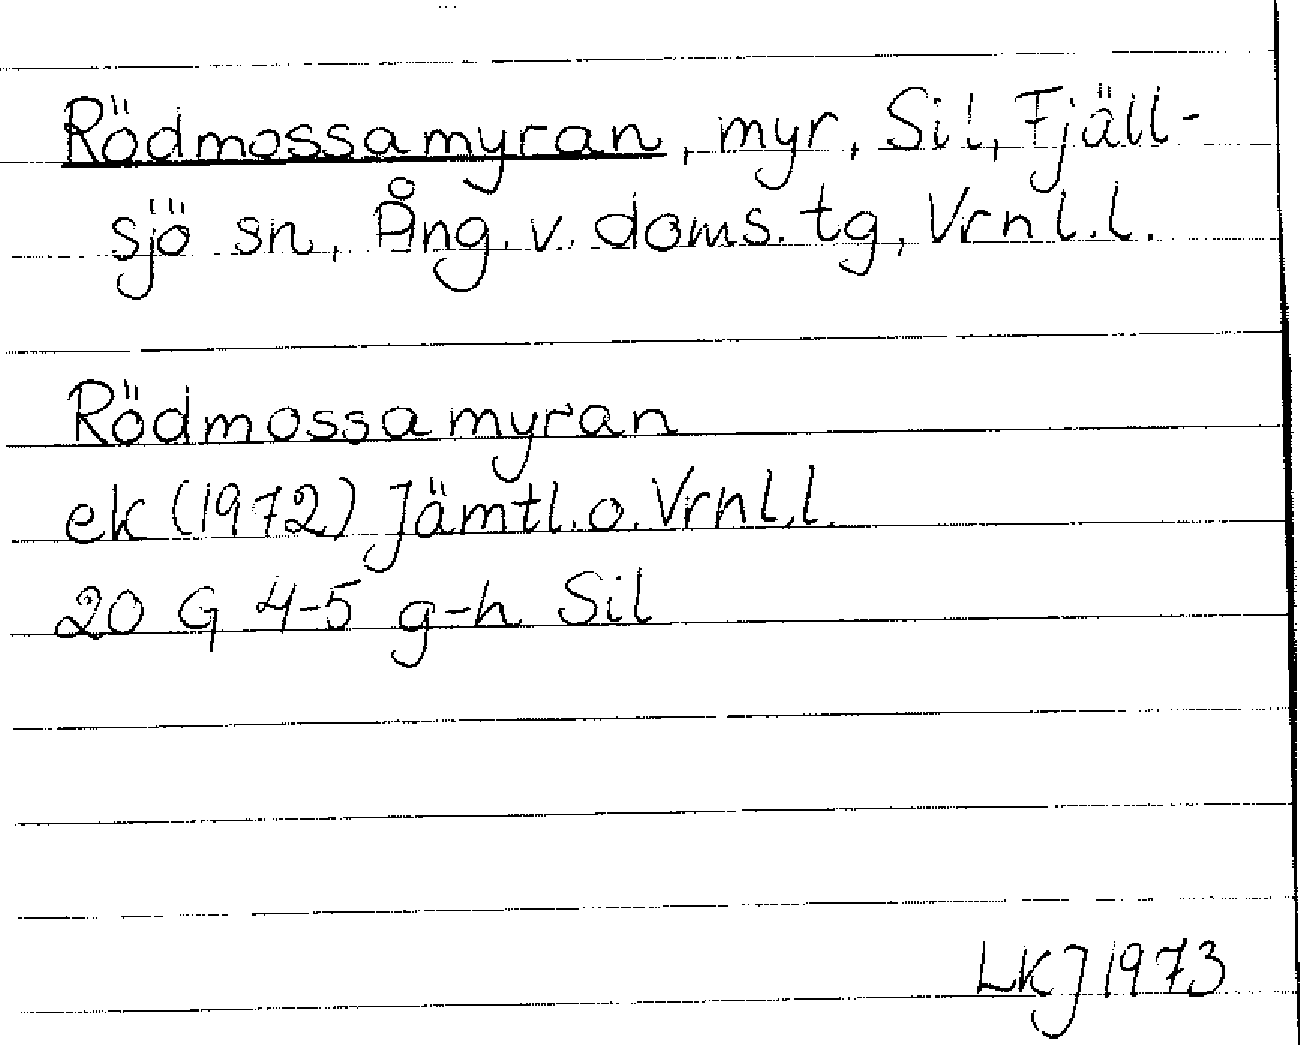 Rödmossamyran, myr, Sil, Fjäll-
sjö sn, Ång. v. doms. tg, Vrnl.l.
Rödmossamyran
ek (1972) Jämtl. o. Vrnl.l.
20 G 4-5 g-h Sil
LKJ 1973